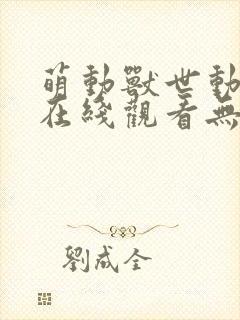 萌動獸世動
在綫觀看無
劉成全